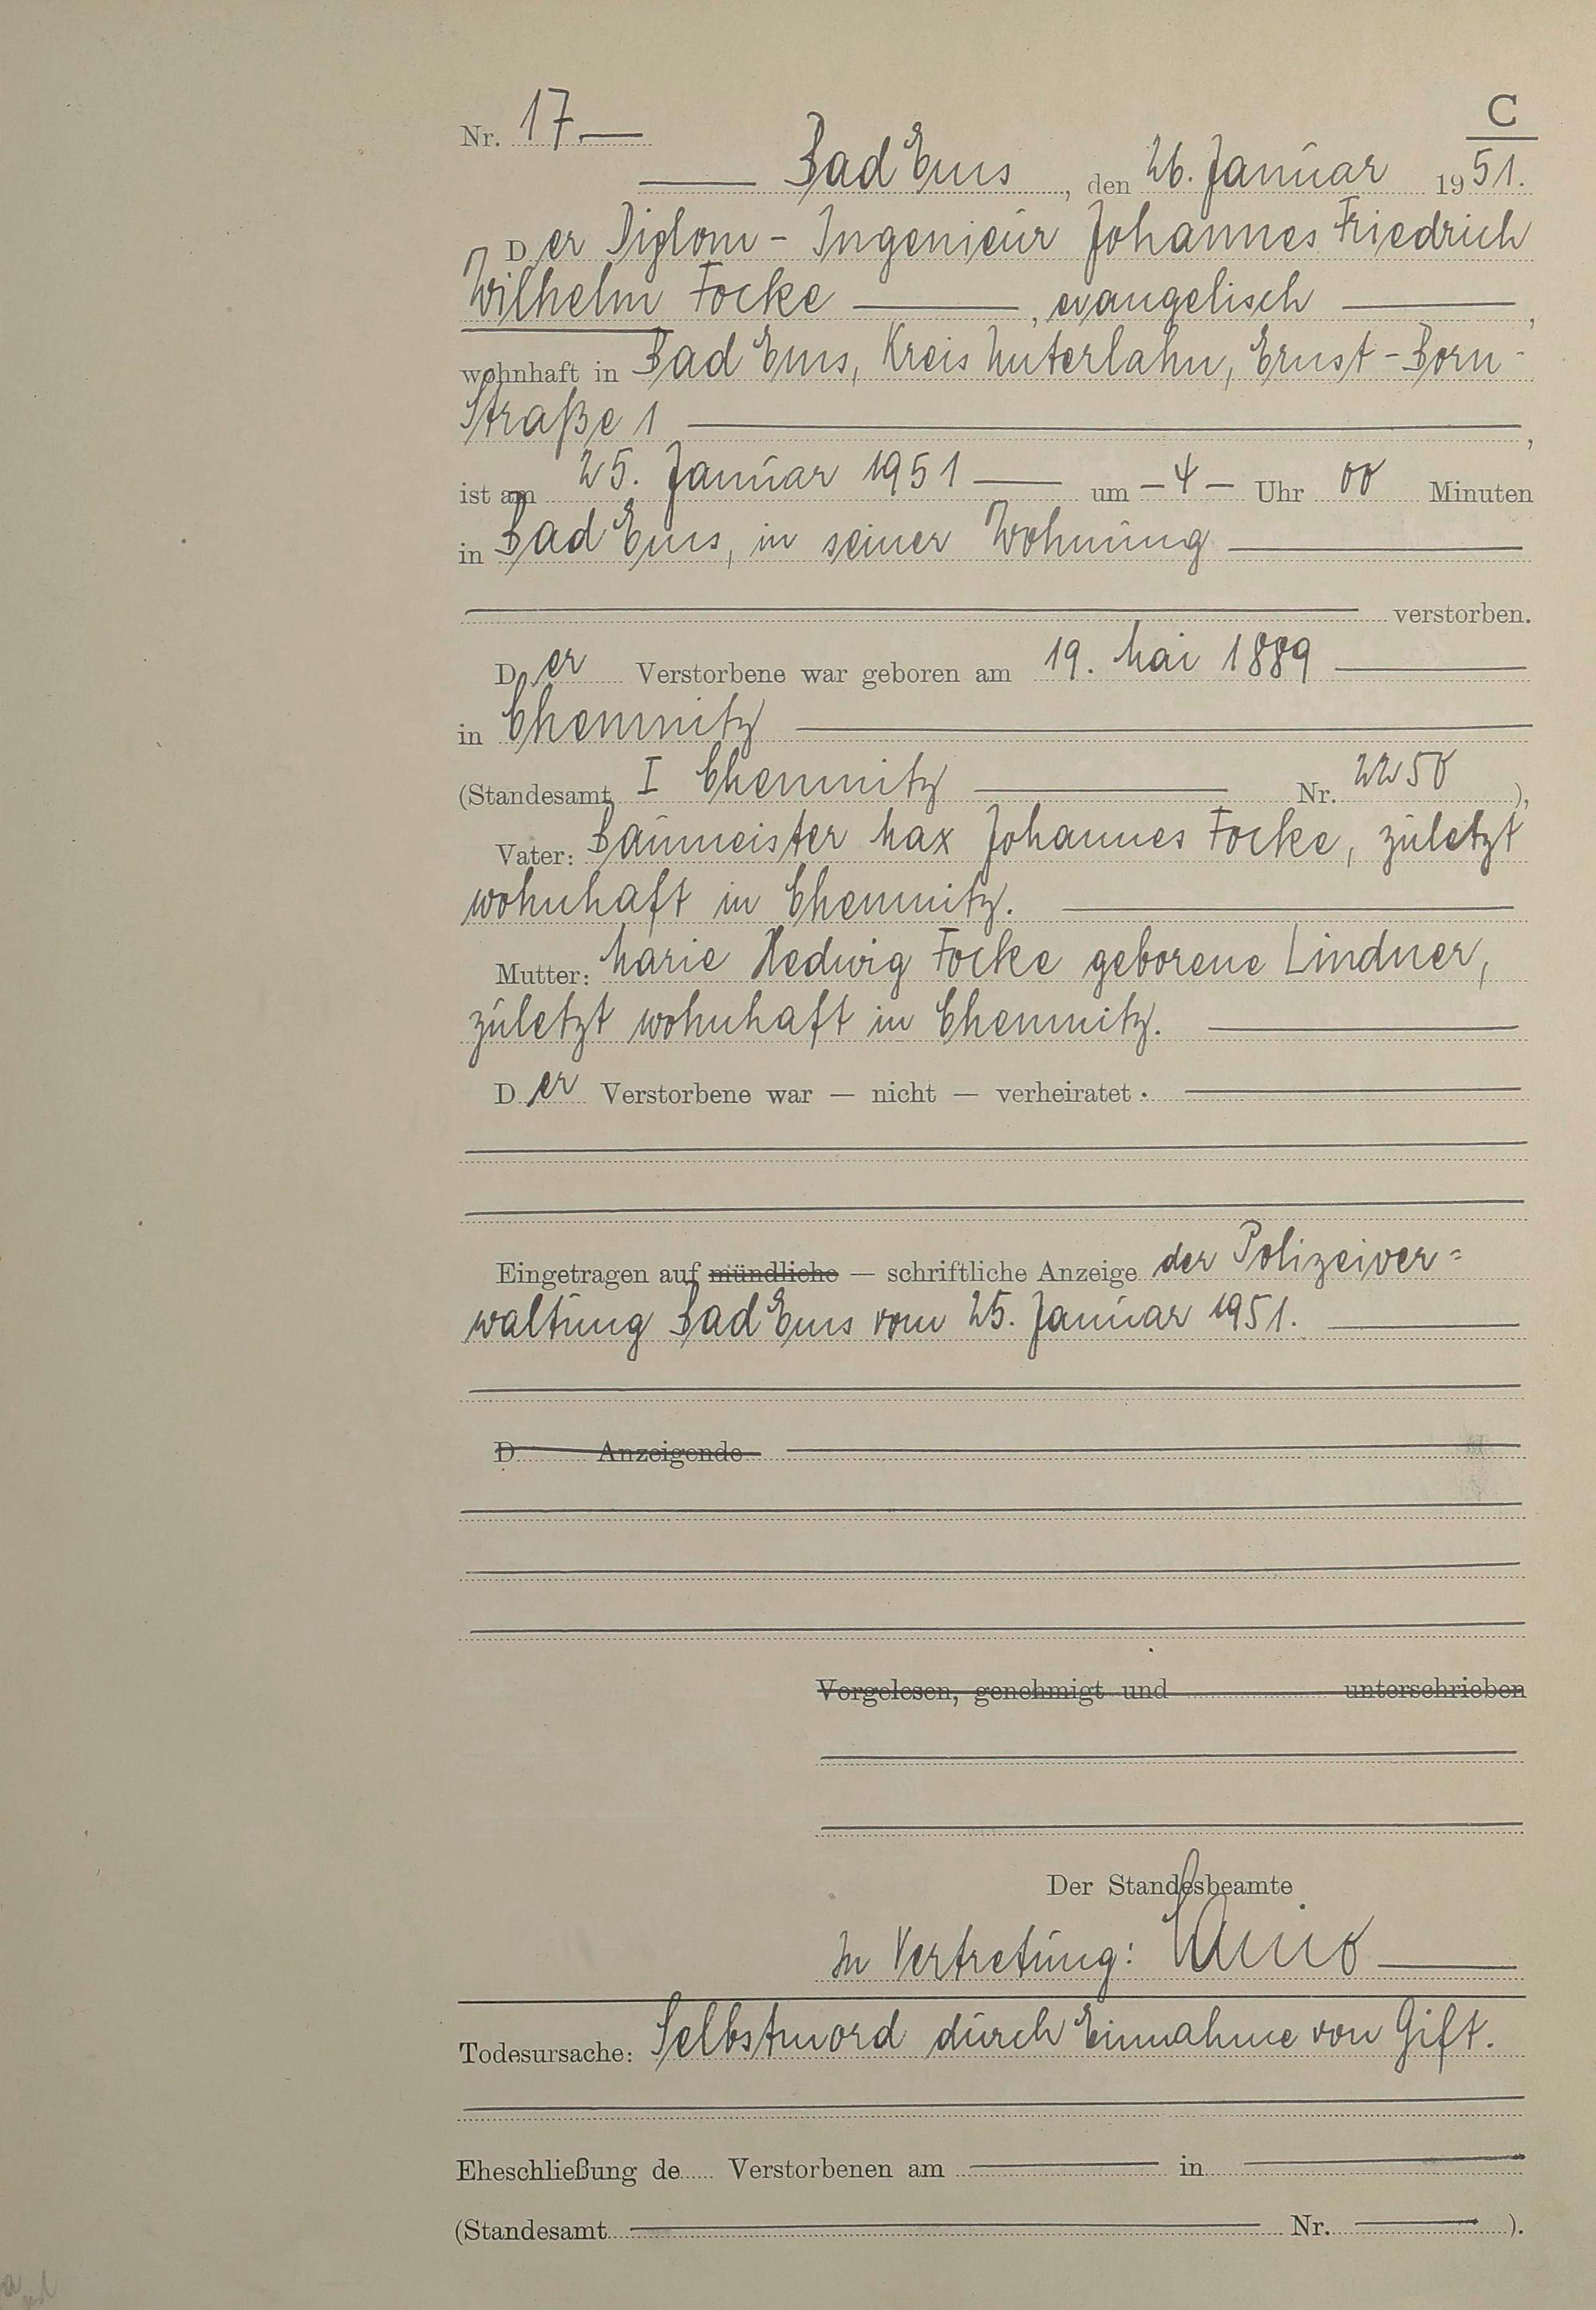 C
Nr. 17.
Bad Ems, den 26. Januar 1951.
Der Diplom-Ingenieur Johannes Friedrich
Wilhelm Focke, evangelisch,
wohnhaft in Bad Ems, Kreis Unterlahn, Ernst-Born-
Straße 1,
ist am 25. Januar 1951 um - 4 - Uhr 00 Minuten
in Bad Ems, in seiner Wohnung
verstorben.
Der Verstorbene war geboren am 19. Mai 1889
in Chemnitz
(Standesamt I Chemnitz Nr. 2250),
Vater: Baumeister Max Johannes Focke, zuletzt
wohnhaft in Chemnitz.
Mutter: Marie Hedwig Focke geborene Lindner,
zuletzt wohnhaft in Chemnitz.
Der Verstorbene war — nicht — verheiratet.
Eingetragen auf mündliche — schriftliche Anzeige der Polizeiver=
waltung Bad Ems vom 25. Januar 1951.
D Anzeigende
Vorgelesen, genehmigt und unterschrieben
Der Standesbeamte
In Vertretung:
Todesursache: Selbstmord durch Einnahme von Gift.
Eheschließung de Verstorbenen am in
(Standesamt Nr. ).